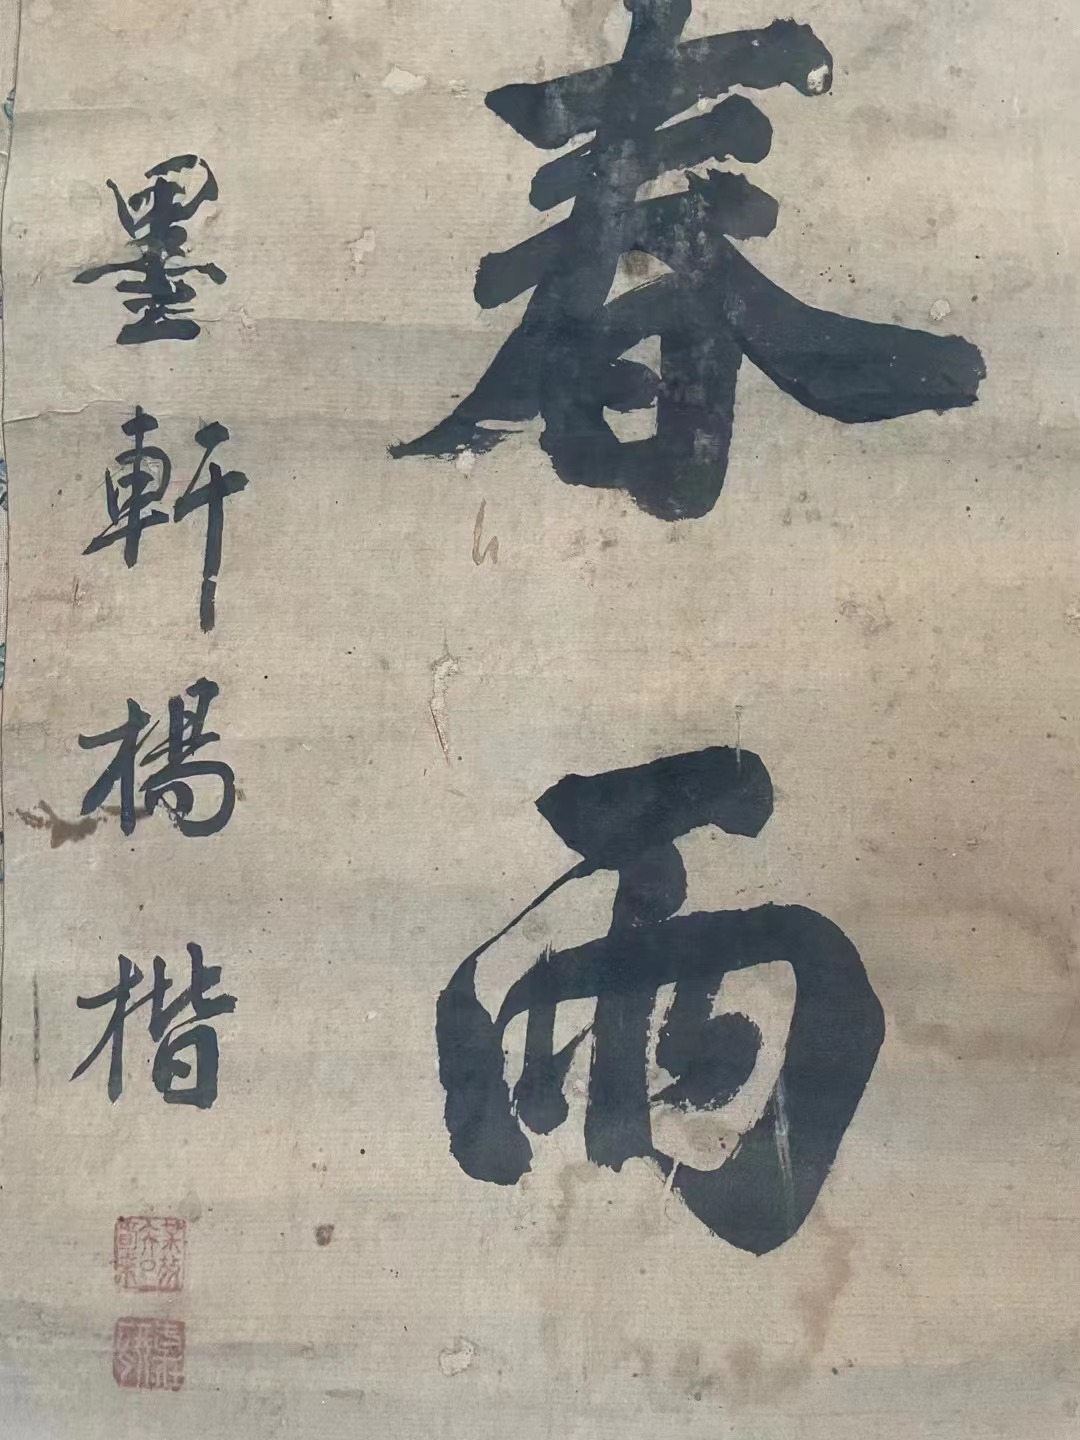 春雨
墨軒楊楷